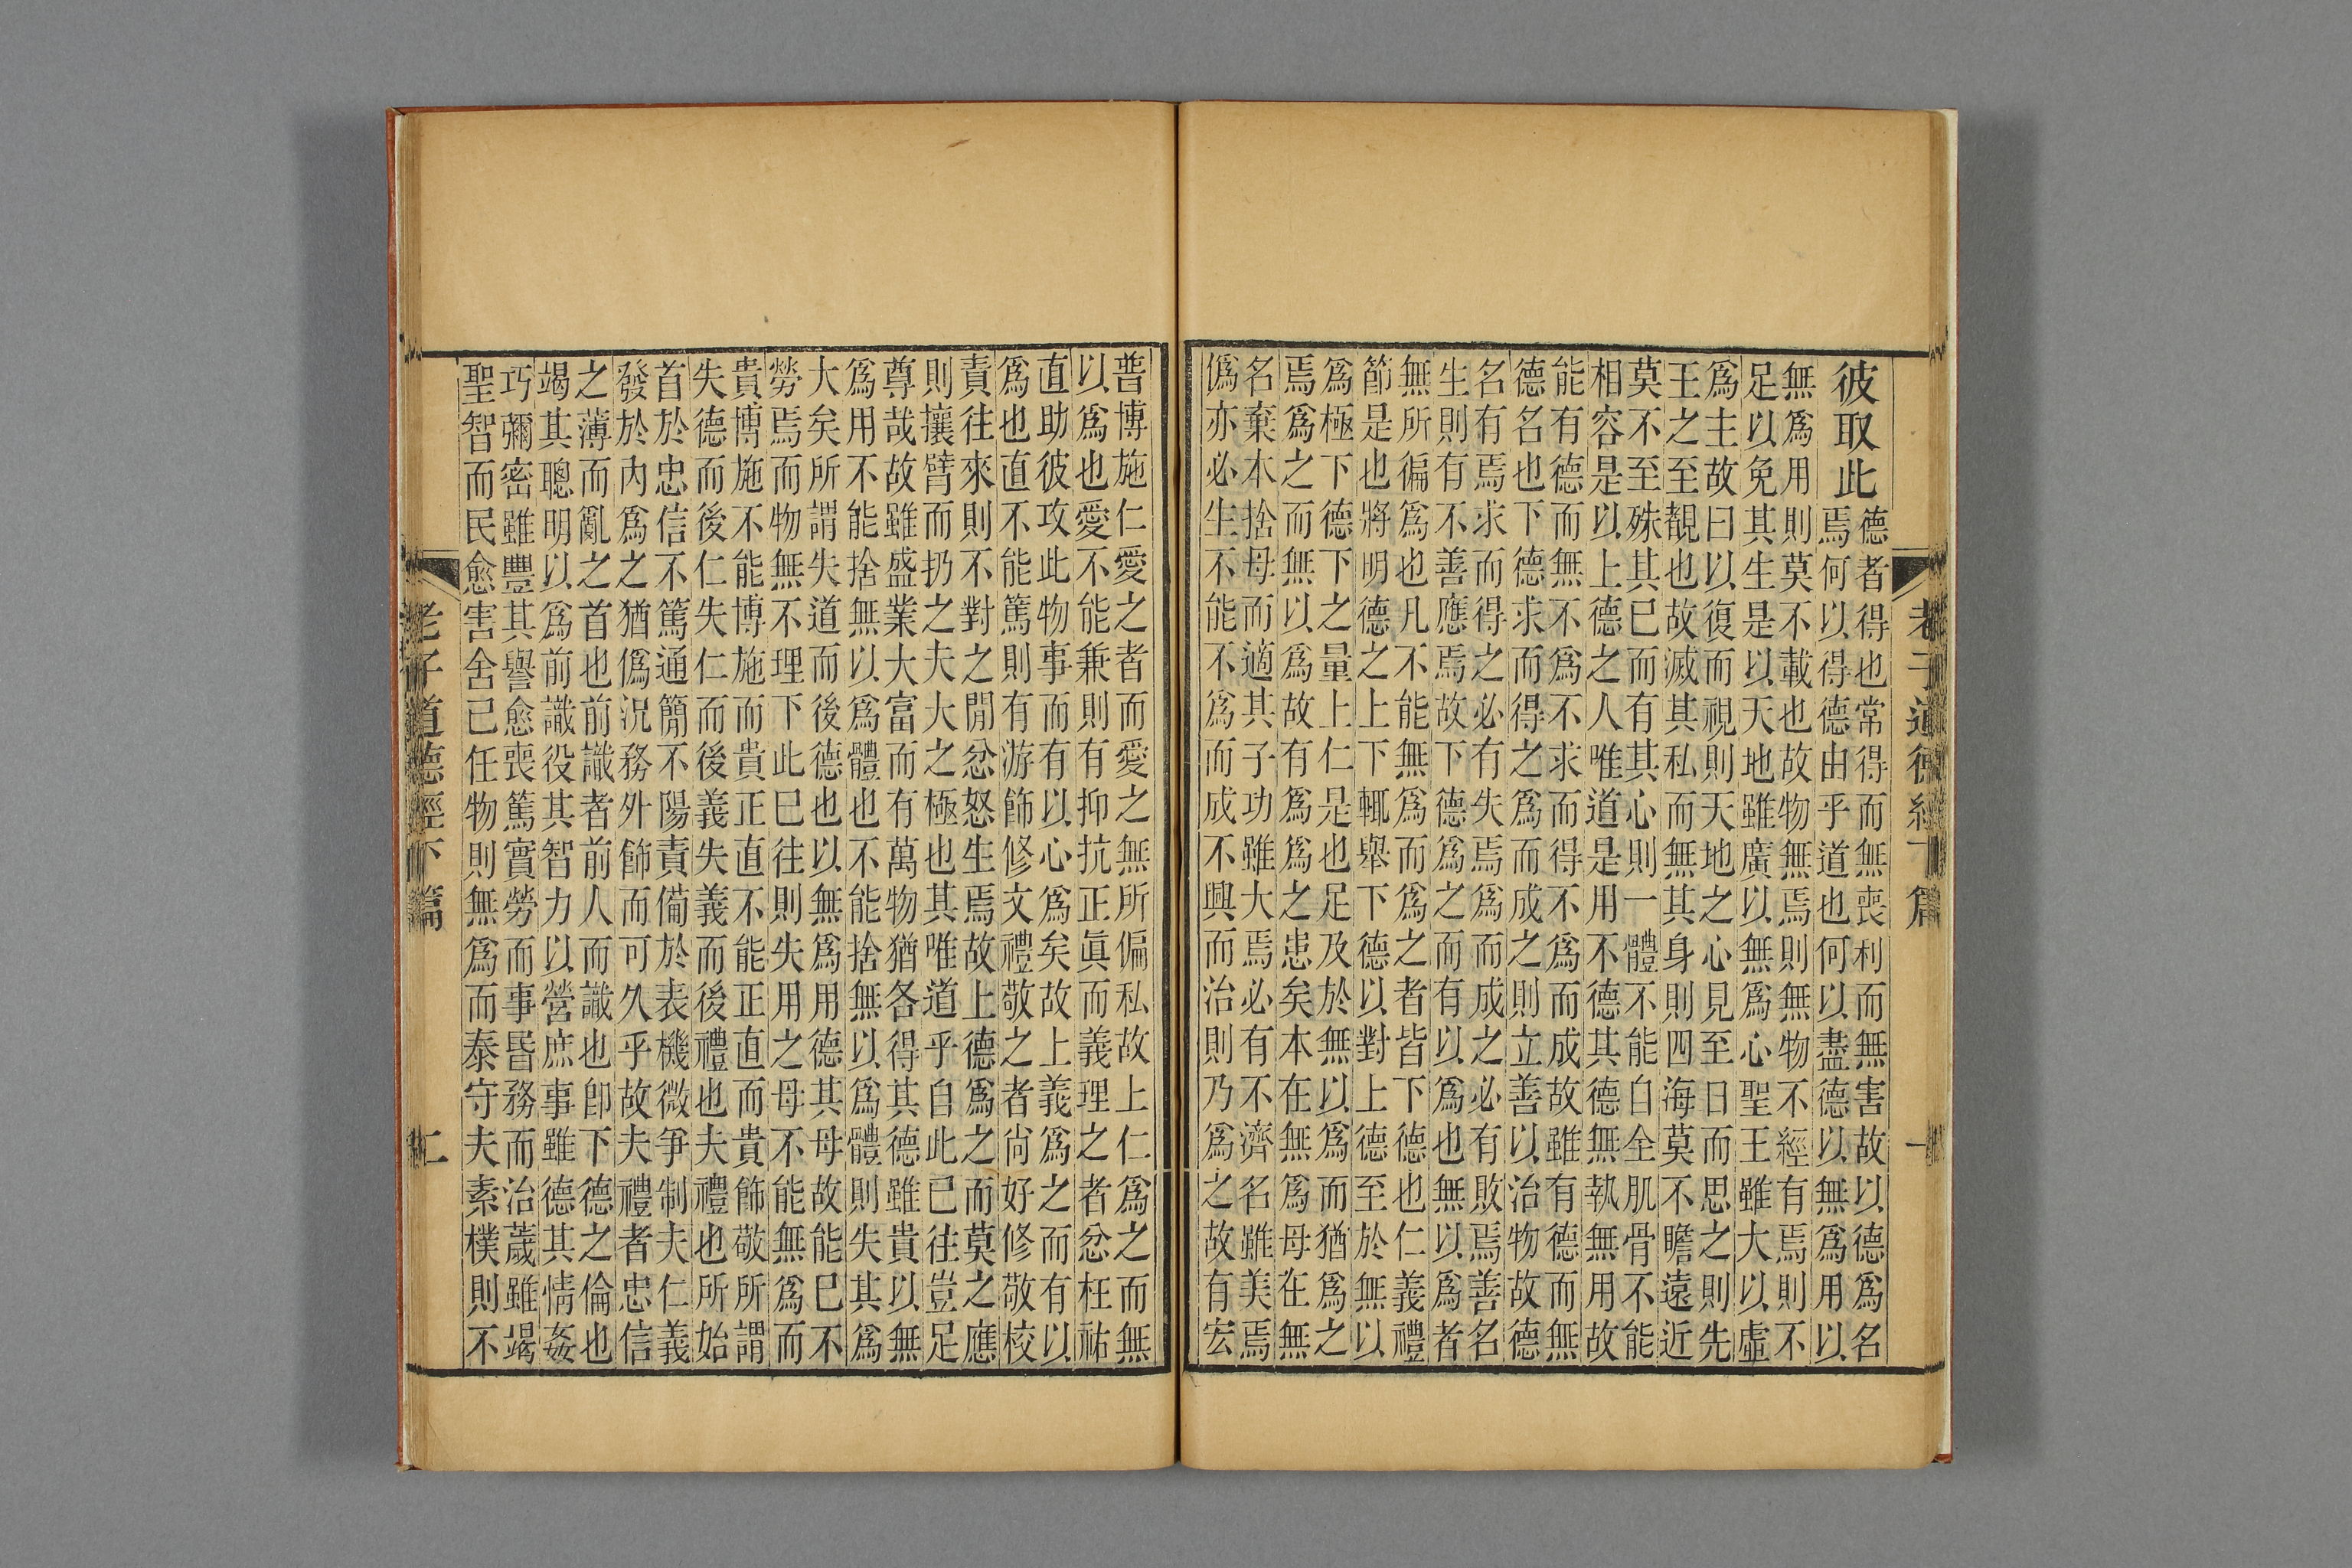 老子道德經下篇 一
彼取此
德者得也常得而無喪利而無害故以德爲名
焉何以得德由乎道也何以盡德以無爲用以
無爲用則莫不載也故物無焉則無物不經有焉則不
足以免其生是以天地雖廣以無爲心聖王雖大以虛
爲主故曰以復而視則天地之心見至日而思之則先
王之至覩也故滅其私而無其身則四海莫不瞻遠近
莫不至殊其已而有其心則一體不能自全肌骨不能
相容是以上德之人唯道是用不德其德無執無用故
能有德而無不爲不求而得不爲而成故雖有德而無
德名也下德求而得之爲而成之則立善以治物故德
名有焉求而得之必有失焉爲而成之必有敗焉善名
生則有不善應焉故下德爲之而有以爲也無以爲者
無所偏爲也凡不能無爲而爲之者皆下德也仁義禮
節是也將明德之上下輒舉下德以對上德至於無以
爲極下德下之量上仁是也足及於無以爲而猶爲之
焉爲之而無以爲故有爲爲之患矣本在無爲母在無
名棄本捨母而適其子功雖大焉必有不濟名雖美焉
僞亦必生不能不爲而成不興而治則乃爲之故有宏
普博施仁愛之者而愛之無所偏私故上仁爲之而無
以爲也愛不能兼則有抑抗正眞而義理之者忿枉祐
直助彼攻此物事而有以心爲矣故上義爲之而有以
爲也直不能篤則有游飾修文禮敬之者尚好修敬校
責往來則不對之閒忿怒生焉故上德爲之而莫之應
則攘臂而扔之夫大之極也其唯道乎自此已往豈足
尊哉故雖盛業大富而有萬物猶各得其德雖貴以無
爲用不能捨無以爲體也不能捨無以爲體則失其爲
大矣所謂失道而後德也以無爲用德其母故能巳不
勞焉而物無不理下此巳往則失用之母不能無爲而
貴博施不能博施而貴正直不能正直而貴飾敬所謂
失德而後仁失仁而後義失義而後禮也夫禮也所始
首於忠信不篤通簡不陽責備於表機微爭制夫仁義
發於內爲之猶僞況務外飾而可久乎故夫禮者忠信
之薄而亂之首也前識者前人而識也卽下德之倫也
竭其聰明以爲前識役其智力以營庶事雖德其情姦
巧彌密雖豐其譽愈喪篤實勞而事昬務而治薉雖竭
聖智而民愈害舍己任物則無爲而泰守夫素樸則不
老子道德經下篇 二